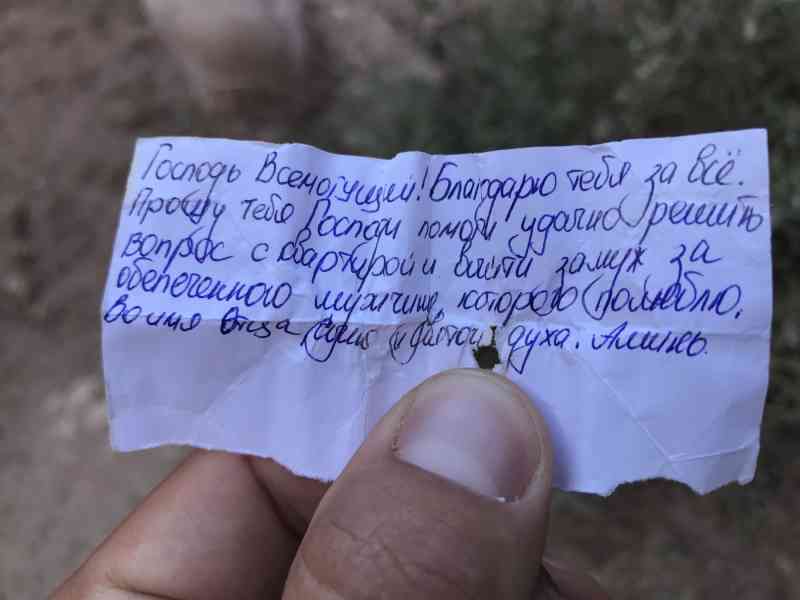 Господь Всемогущий! Благодарю тебя за всё.
Прошу тебя Господи помоги удачно решить
вопрос с квартирой и выйти замуж за
обепеченного мужчину, которого полюблю.
Во имя Отца Сына и Святого духа. Аминь.